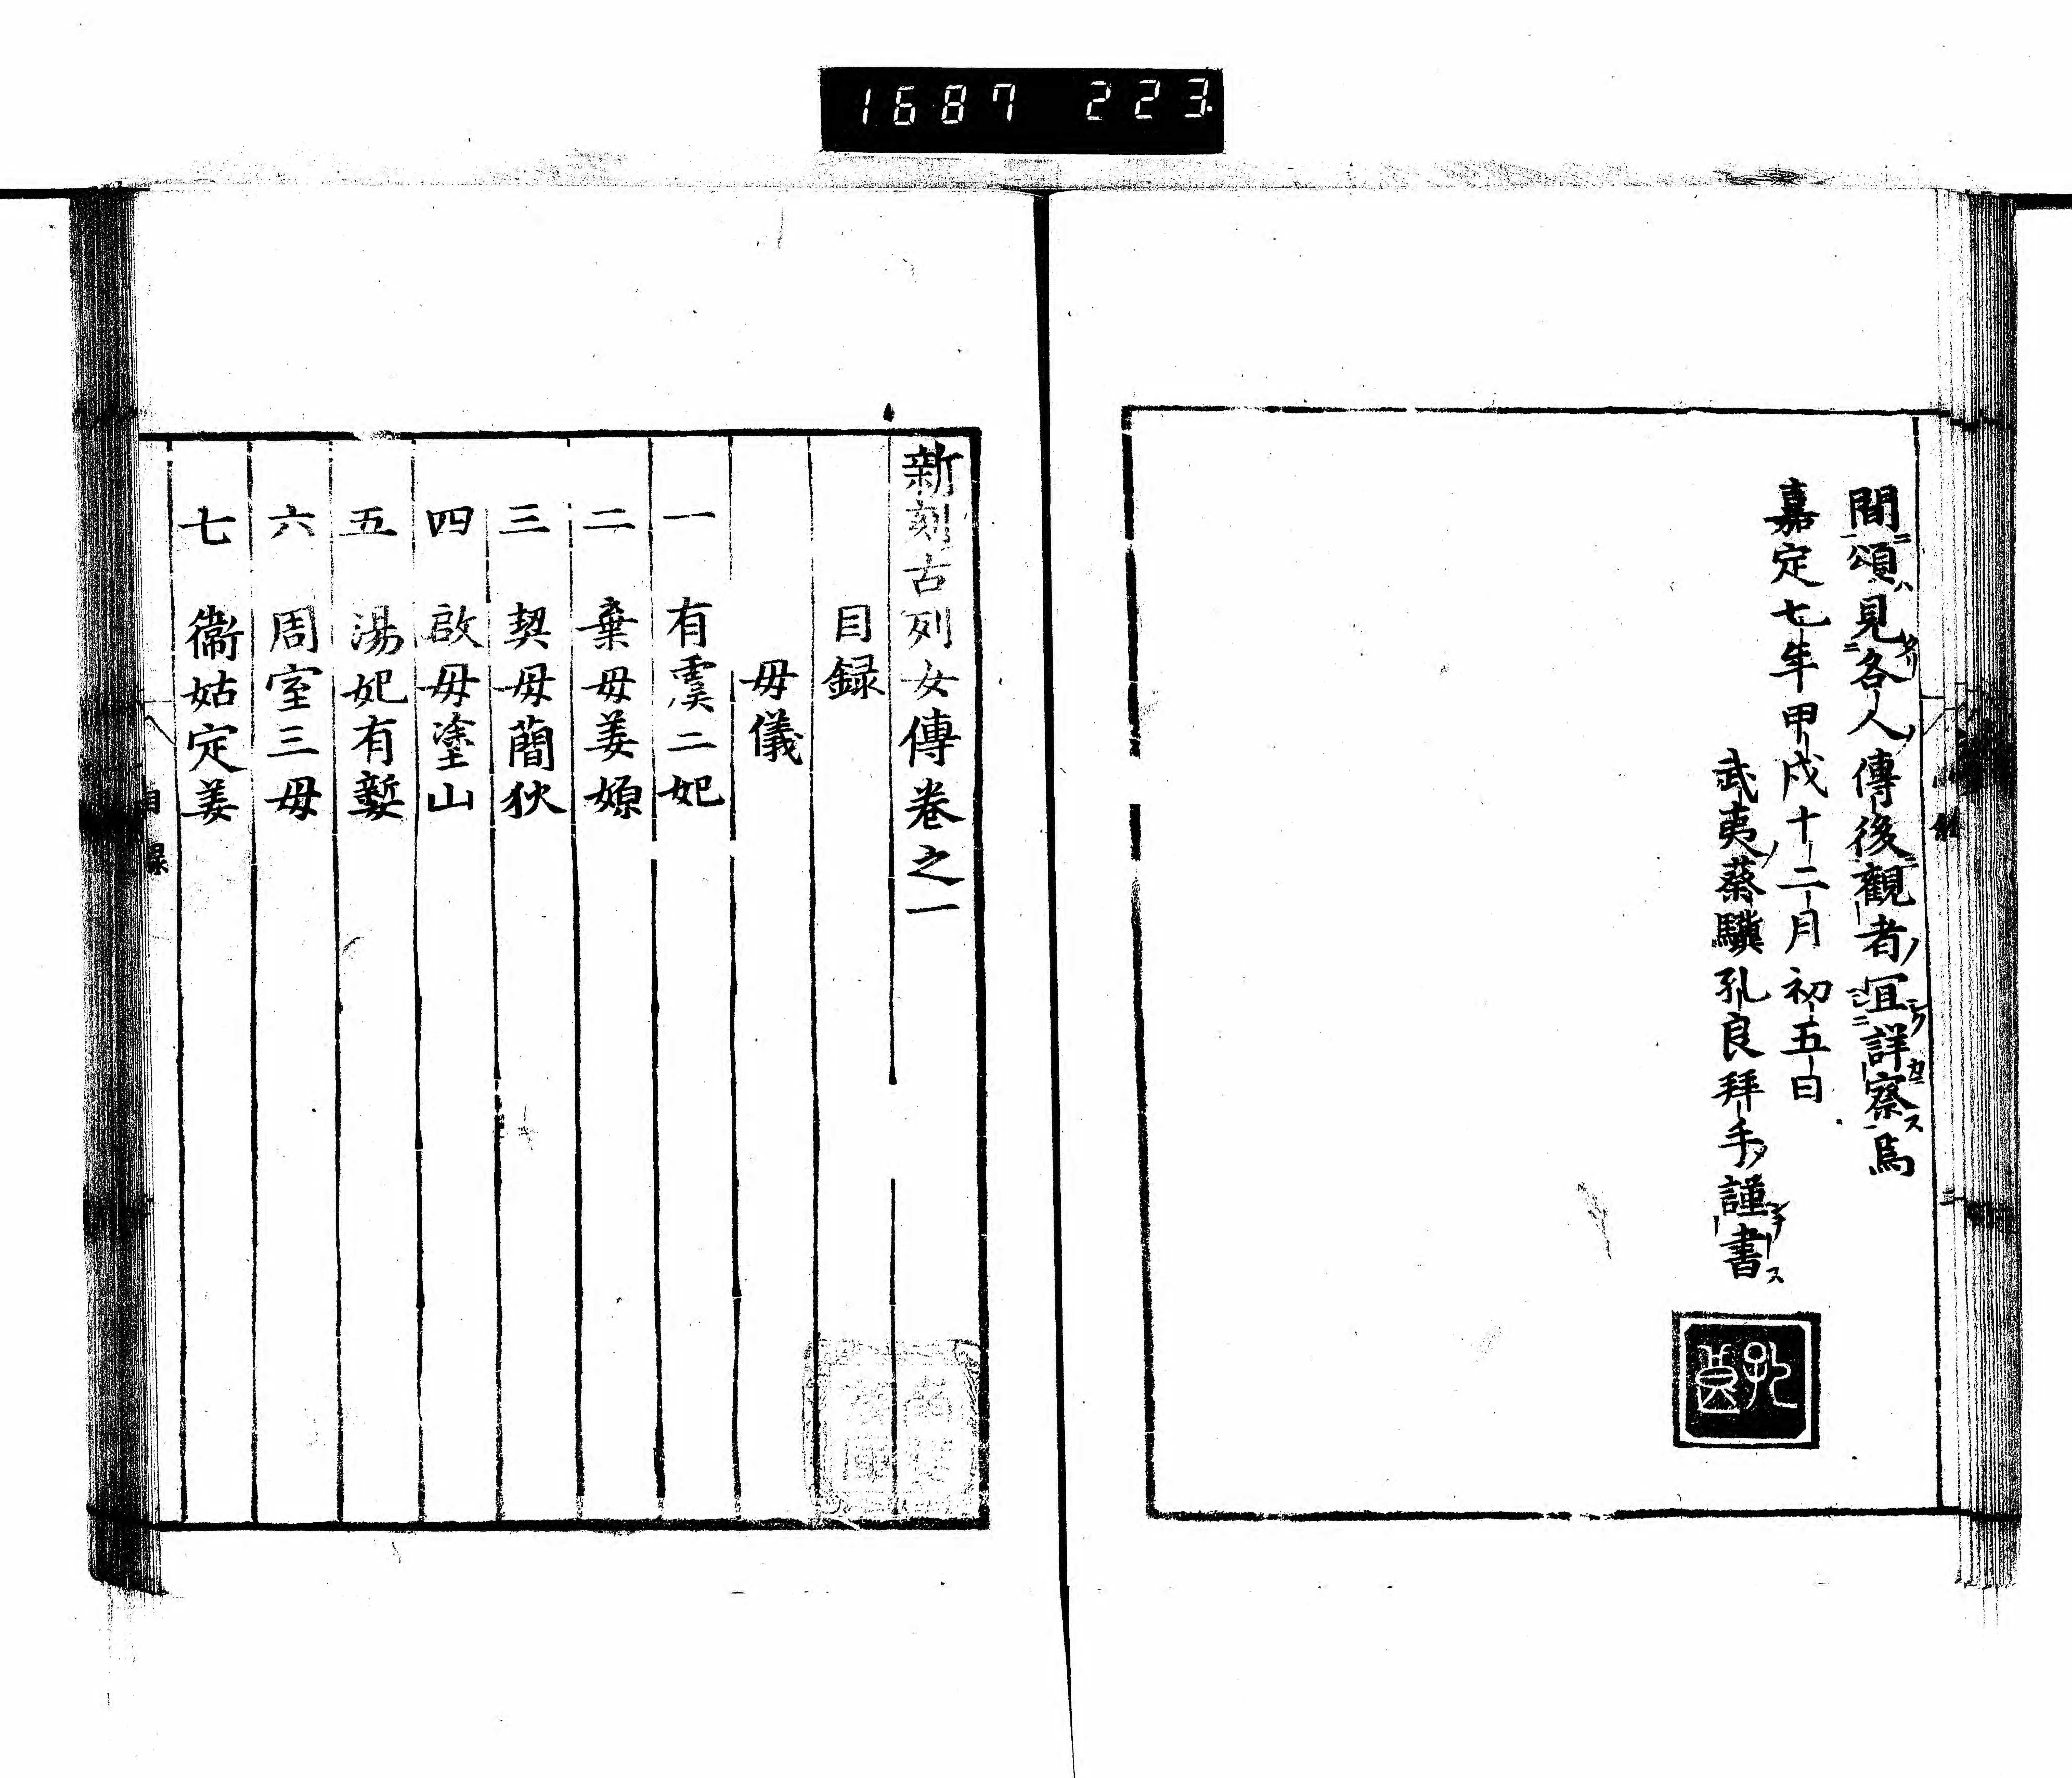 1687 223
間頌見各人傳後觀者宜詳察焉
嘉定七年甲戌十二月初五日
武夷蔡驥孔良拜手謹書
孔良
新刻古列女傳卷之一
目録
母儀
一 有虞二妃
二 棄母姜嫄
三 契母簡狄
四 啟母塗山
五 湯妃有㜪
六 周室三母
七 衞姑定姜
目録